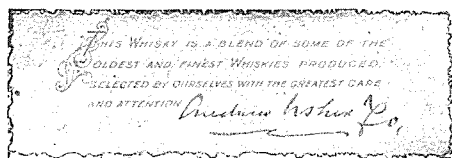 THIS WHISKY IS A BLEND OF SOME OF THE
OLDEST AND FINEST WHISKIES PRODUCED,
SELECTED BY OURSELVES WITH THE GREATEST CARE
AND ATTENTION
Andrew Usher & Co,